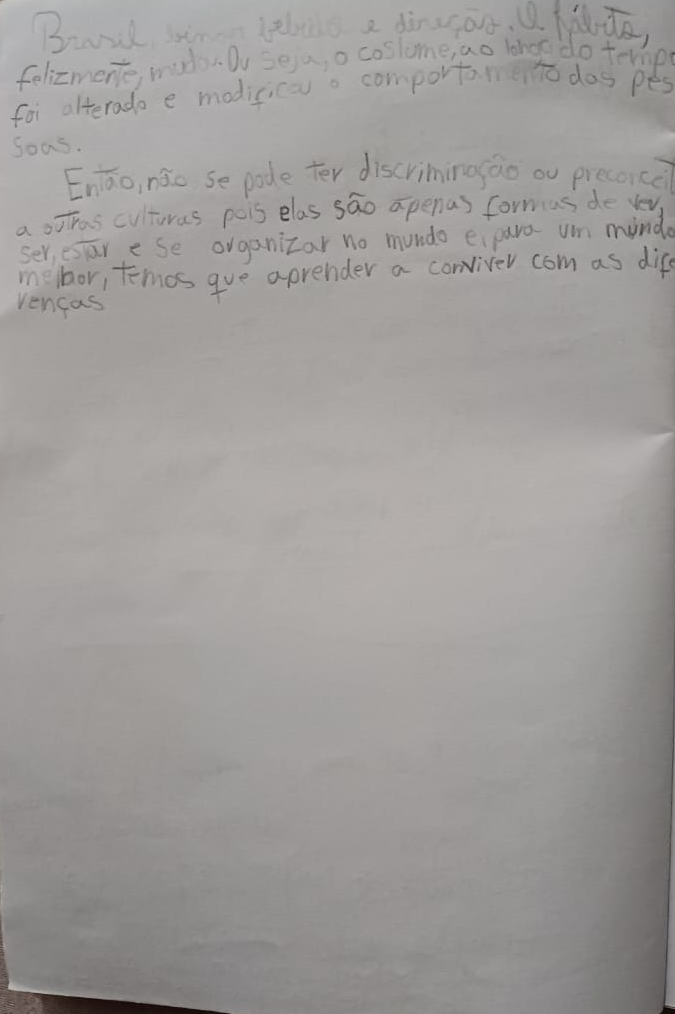 Brasil, bebida e direção. O hábito,
felizmente, mudou. Ou seja, o costume, ao longo do tempo
foi alterado e modificou o comportamento das pes
soas.
Então, não se pode ter discriminação ou preconceit
a outras culturas pois elas são apenas formas de ver,
ser, estar e se organizar no mundo e, para um mundo
melhor, temos que aprender a conviver com as dife
renças